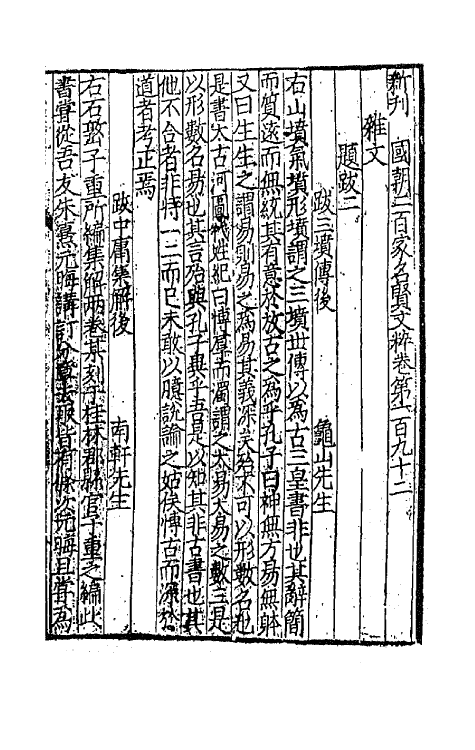 新刊　國朝二百家名賢文粹卷第一百九十二
雜文
題跋二
跋三墳傳後　龜山先生
右山墳氣墳形墳謂之三墳世傳以為古三皇書非也其辭簡
而質遠而無統其有意於放古之為乎孔子曰神無方易無躰
又曰生生之謂易則易之為易其義深矣殆不可以形數名也
是書大古河圖代姓紀曰博厚而濁謂之太易太易之數三是
以形數名易也其言殆與孔子異乎吾是以知其非古書也其
他不合者非特一二而已未敢以臆說論之姑俟博古而深於
道者考正焉
跋中庸集解後　南軒先生
右石𡼖子重所編集解兩卷某刻于桂林郡縣官子重之編此
書嘗從吾友朱熹元晦講訂分章去取皆有條次元晦且嘗為